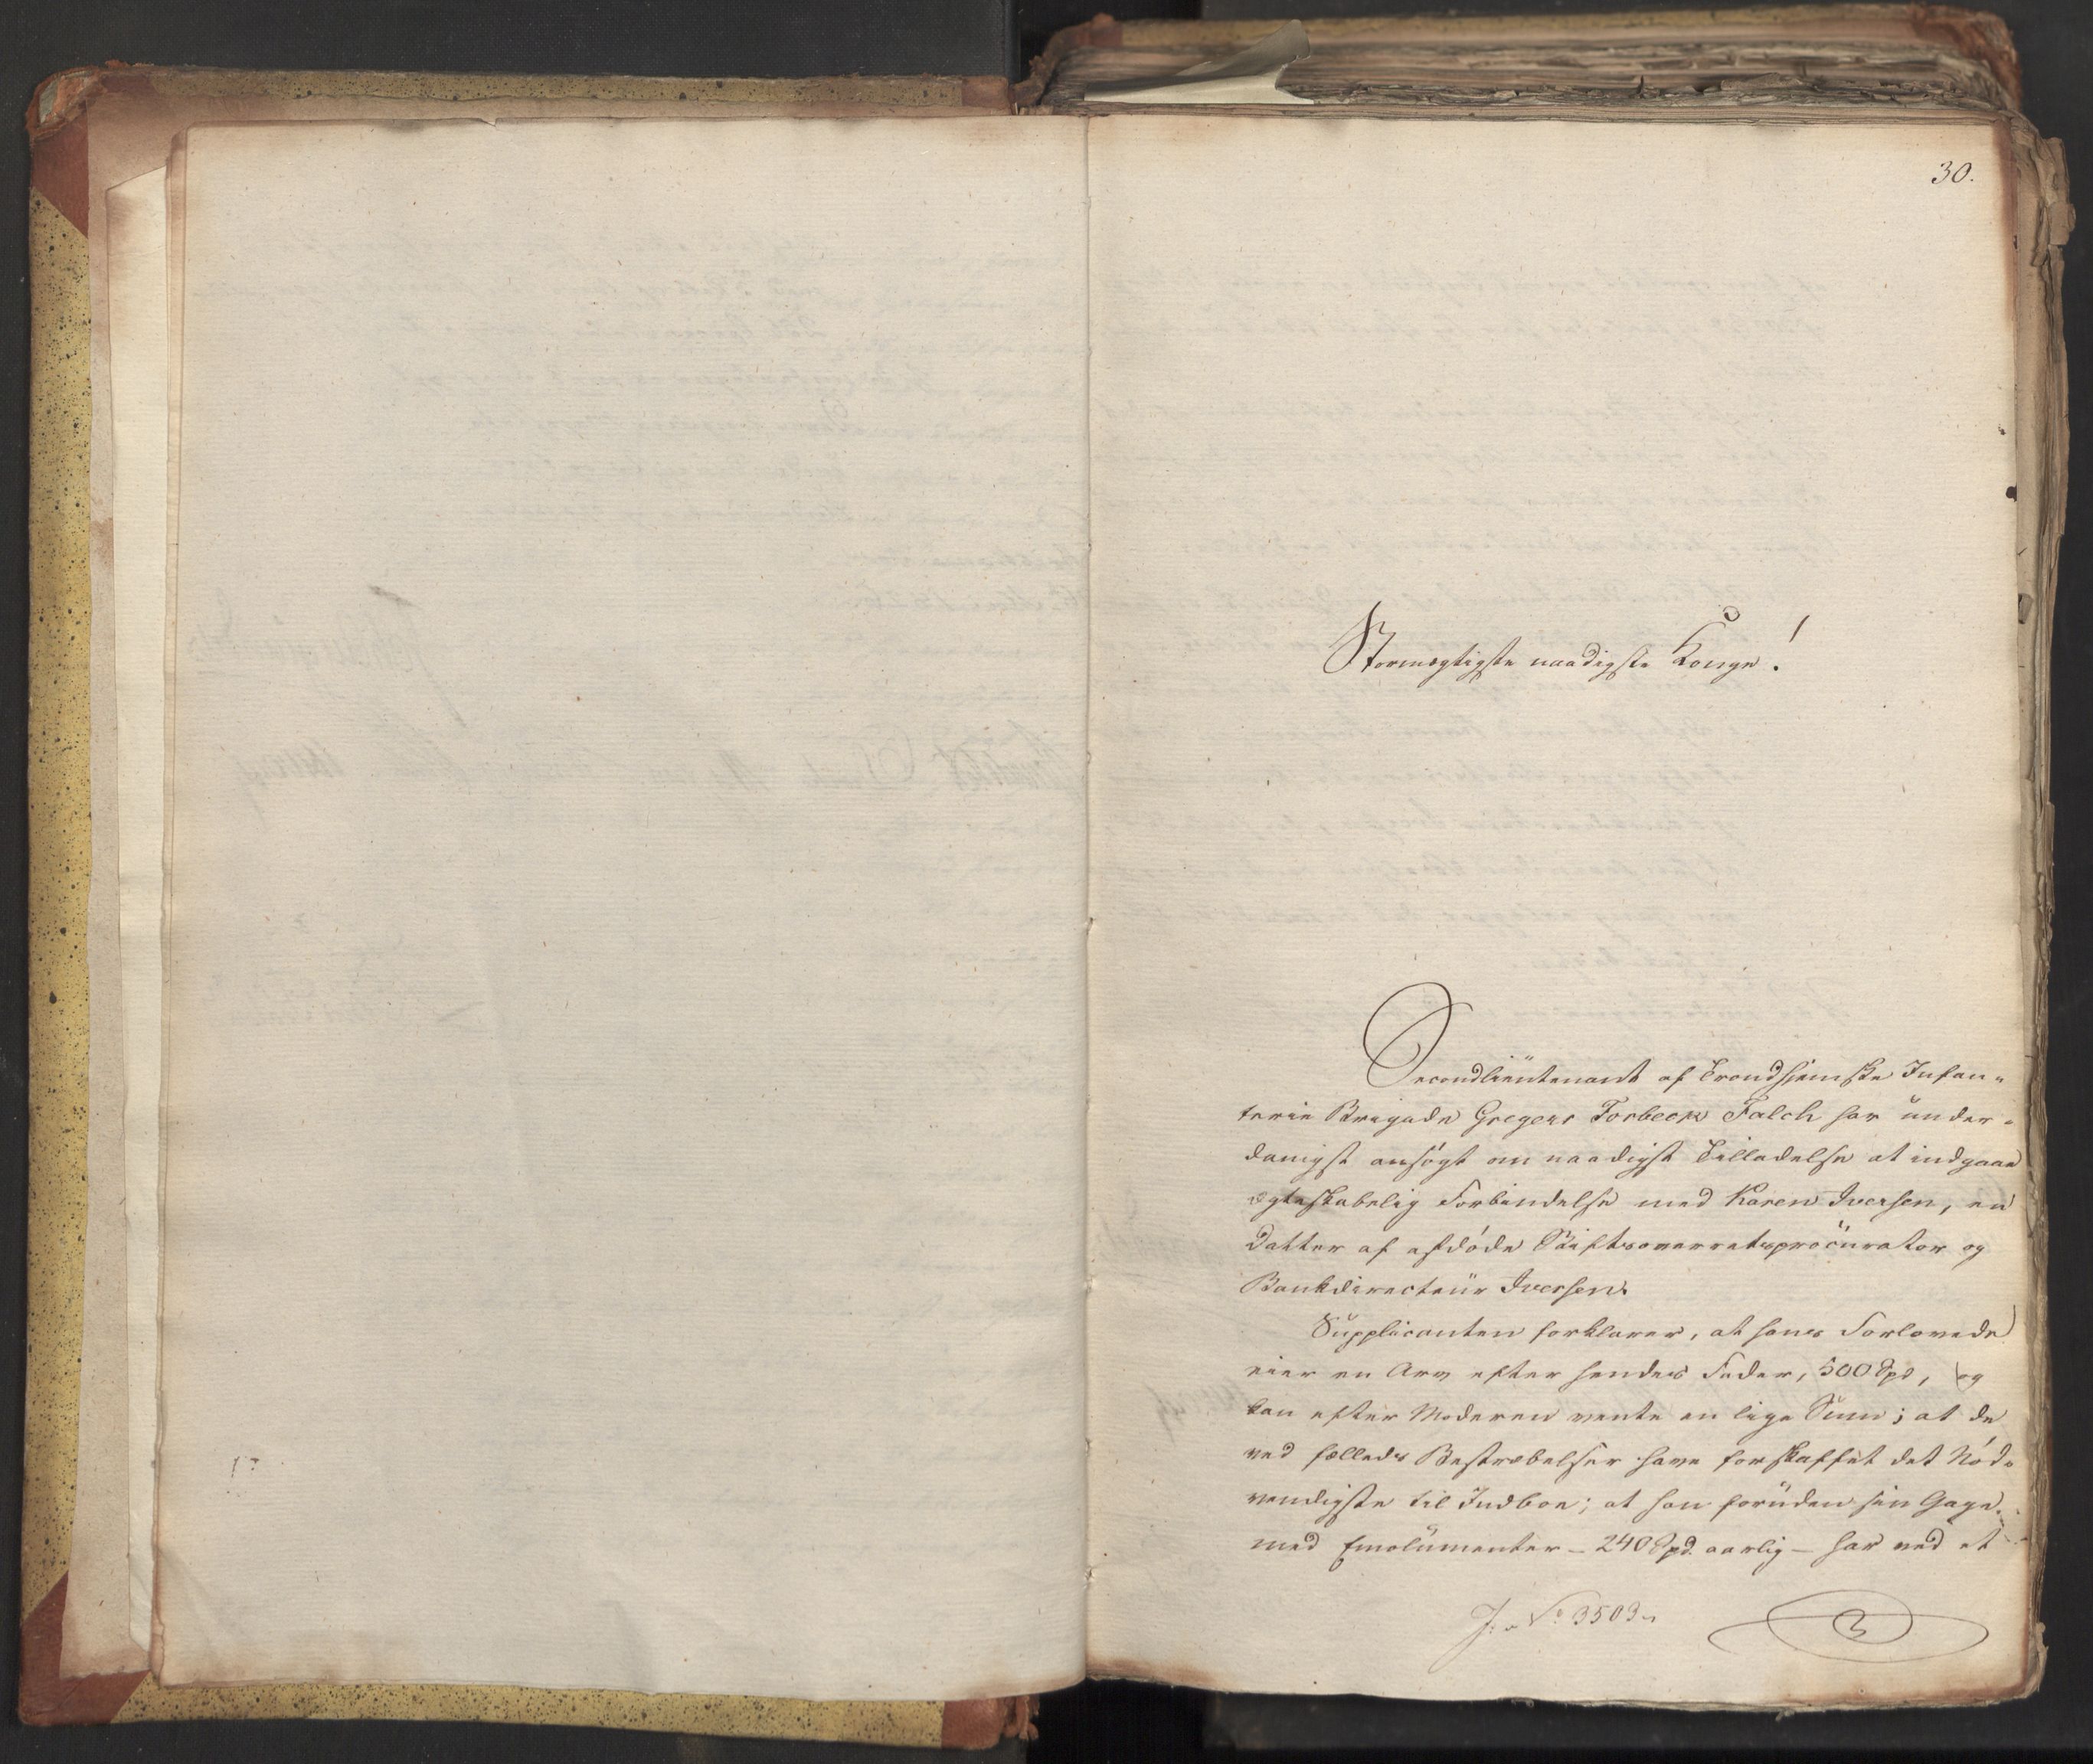 30.
Stormægtigste naadigste Konge!
Secondlieutenant af Trondhjemske Infan-
terie Brigade Gregers Forbech Falch har under-
danigst ansøgt om naadigst Tilladelse at indgaae
ægteskabelig Forbindelse med Karen Iversen, en
Datter af afdøde Stiftsoverretsprocurator og
Bankdirecteur Iversen.
Supplicanten forklarer, at hans Forlovede
eier en Arv efter hendes Fader, 500 Spd, og
kan efter Moderen vente en lige Sum; at de
ved fælleds Bestræbelser have forskaffet det Nød-
vendigste til Indboe; at han foruden sin Gage
med Emolumenter – 240 Spd. aarlig – har ved et
J. No 3503.